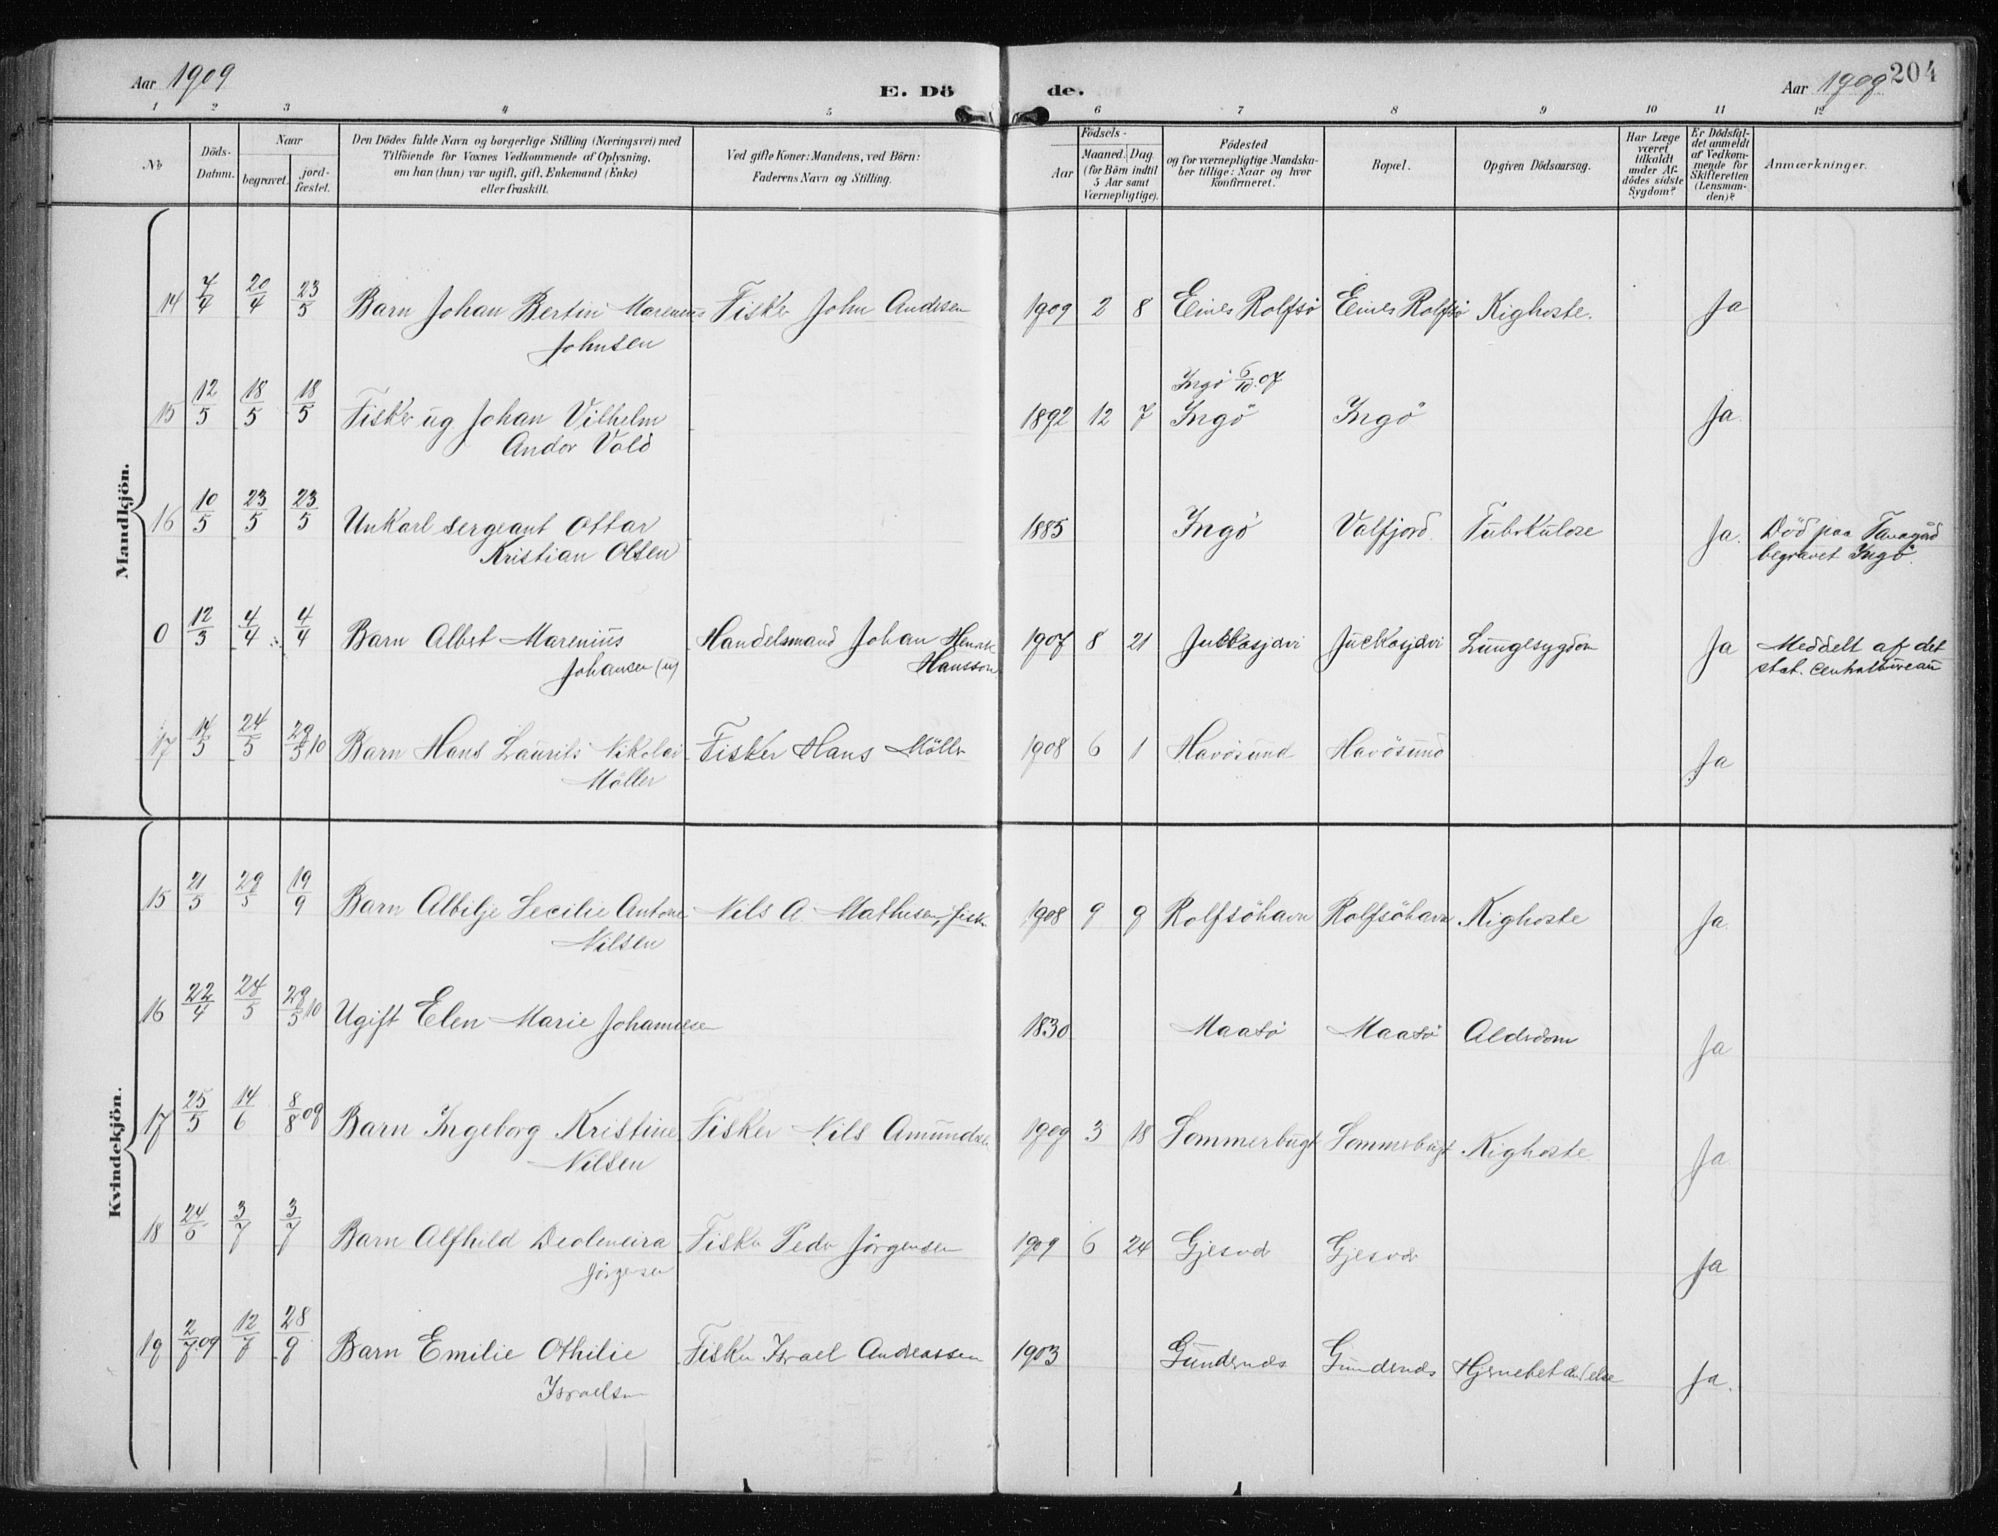 Aar 1909
E. Dö
de.
Aar 1909
204
1 2 3 4 5 6 7 8 9 10 11 12
No
Döds-Datum.
Naar
begravet.
jord-fæstet.
Den Dödes fulde Navn og borgerlige Stilling (Næringsvei) med
Tilföiende for Voxnes Vedkommende af Oplysning,
om han (hun) var ugift, gift, Enkemand (Enke)
eller fraskilt.
Ved gifte Koner: Mandens, ved Börn:
Faderens Navn og Stilling.
Födsels-
Aar
Maaned. Dag
(for Börn indtil
5 Aar samt
Værnepligtige).
Födested
og for værnepligtige Mandska-
ber tillige: Naar og hvor
konfirmeret.
Bopæl.
Opgiven Dödsaarsag.
Har Læge
været
tilkaldt
under Af-
dödes sidste
Sygdom?
Er Dödsfal-
det anmeldt
af Vedkom-
mende for
Skifteretten
(Lensman-
den)?
Anmærkninger.
Mandkjön.
14 7/4 20/4 23/5 Barn Johan Bertin Marenius Fisker John Andrsen 1909 2 8 Eines Rolfsö Eines Rolfsö Kighoste. Ja
Johnsen
Ingö 6/10 07
15 12/5 18/5 18/5 Fisker ug Johan Vilhelm 1892 12 7 Ingö Ingö Ja.
Andor Vold
16 10/5 23/5 23/5 Unkarl sergeant Ottar 1885 Ingö Valfjord. Tubrkulose Ja. Död paa
Kristian Olsen begravet Ingö.
0 12/3 4/4 4/4 Barn Albert Marenius Handelsmand Johan Henrik 1907 8 21 Jukkasjdvi Juckasjdvi Lungesygdom Ja Meddelt af det
Johansen (u) Hansson stat. centralbureau
17 14/5 24/5 29/5 10 Barn Hans Laurits Nikolai Fisker Hans Möller 1908 6 1 Havösund Havösund Ja
Möller
Kvindekjön.
15 21/5 29/5 19/9 Barn Albilje Cecilie Antone Nils A. Mathisen, fisk. 1908 9 9 Rolfsöhavn Rolfsöhavn Kighoste Ja.
Nilsen
16 22/4 24/5 29/5 10 Ugift Elen Marie Johannesen 1830 Maasö Maasö Aldrdom Ja
17 25/5 14/6 8/8 09 Barn Ingeborg Kristine Fisker Nils Amundsen 1909 3 18 Sommerbugt Sommerbugt Kighoste. Ja.
Nilsen
18 24/6 3/7 3/7 Barn Alfhild Deoleneira Fisker Pedr Jörgensen 1909 6 24 Gjesvd Gjesvdr Ja
Jörgensen
19 2/7 09 12/7 28/9 Barn Emilie Othilie Fisker Israel Andreassen 1903 Gundernds Gundernds Hjernebetændelse Ja.
Israelsen